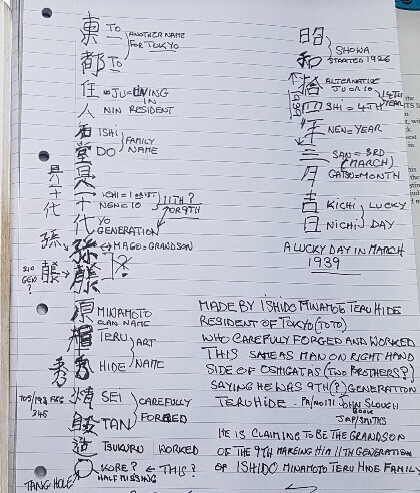 東 TO
都 TO
ANOTHER NAME
FOR TOKYO
住 JU = LIVING
IN
人 NIN RESIDENT
石 ISHI
堂 DO
FAMILY
NAME
ICHI = 1 OR 1ST
NEN = 10
11TH ?
OR 9TH
十
代 YO
GENERATION
孫 MAGO = GRANDSON
?
原 MINAMOTO
CLAN NAME
TERU
秀 HIDE
ART
NAME
SEI
TAN
CAREFULLY
FORGED
造 TSUKURU WORKED
KORE? ← THIS?
HALF MISSING
TANG HOLE
十
代
孫
GEN
?
秀
昭
和
SHOWA
STARTED 1926
拾 ALTERNATIVE
JU OR 10
四 SHI = 4TH
14TH
YEAR
年 NEN = YEAR
三 SAN = 3RD
(MARCH)
月 GATSU = MONTH
吉 KICHI LUCKY
日 NICHI DAY
A LUCKY DAY IN MARCH
1939
MADE BY ISHIDO MINAMOTO TERU HIDE
RESIDENT OF TOKYO (TOTO)
WHO CAREFULLY FORGED AND WORKED
THIS SAME AS MAN ON RIGHT HAND
SIDE OF OSHIGATAS (TWO BROTHERS?)
SAYING HE WAS 9TH (?) GENERATION
TERU HIDE JOHN SLOUGH
BOOK
JAP/SMITHS
HE IS CLAIMING TO BE THE GRANDSON
OF THE 9TH MAKEING HIM 11TH GENERATION
OF ISHIDO MINAMOTO TERU HIDE FAMILY